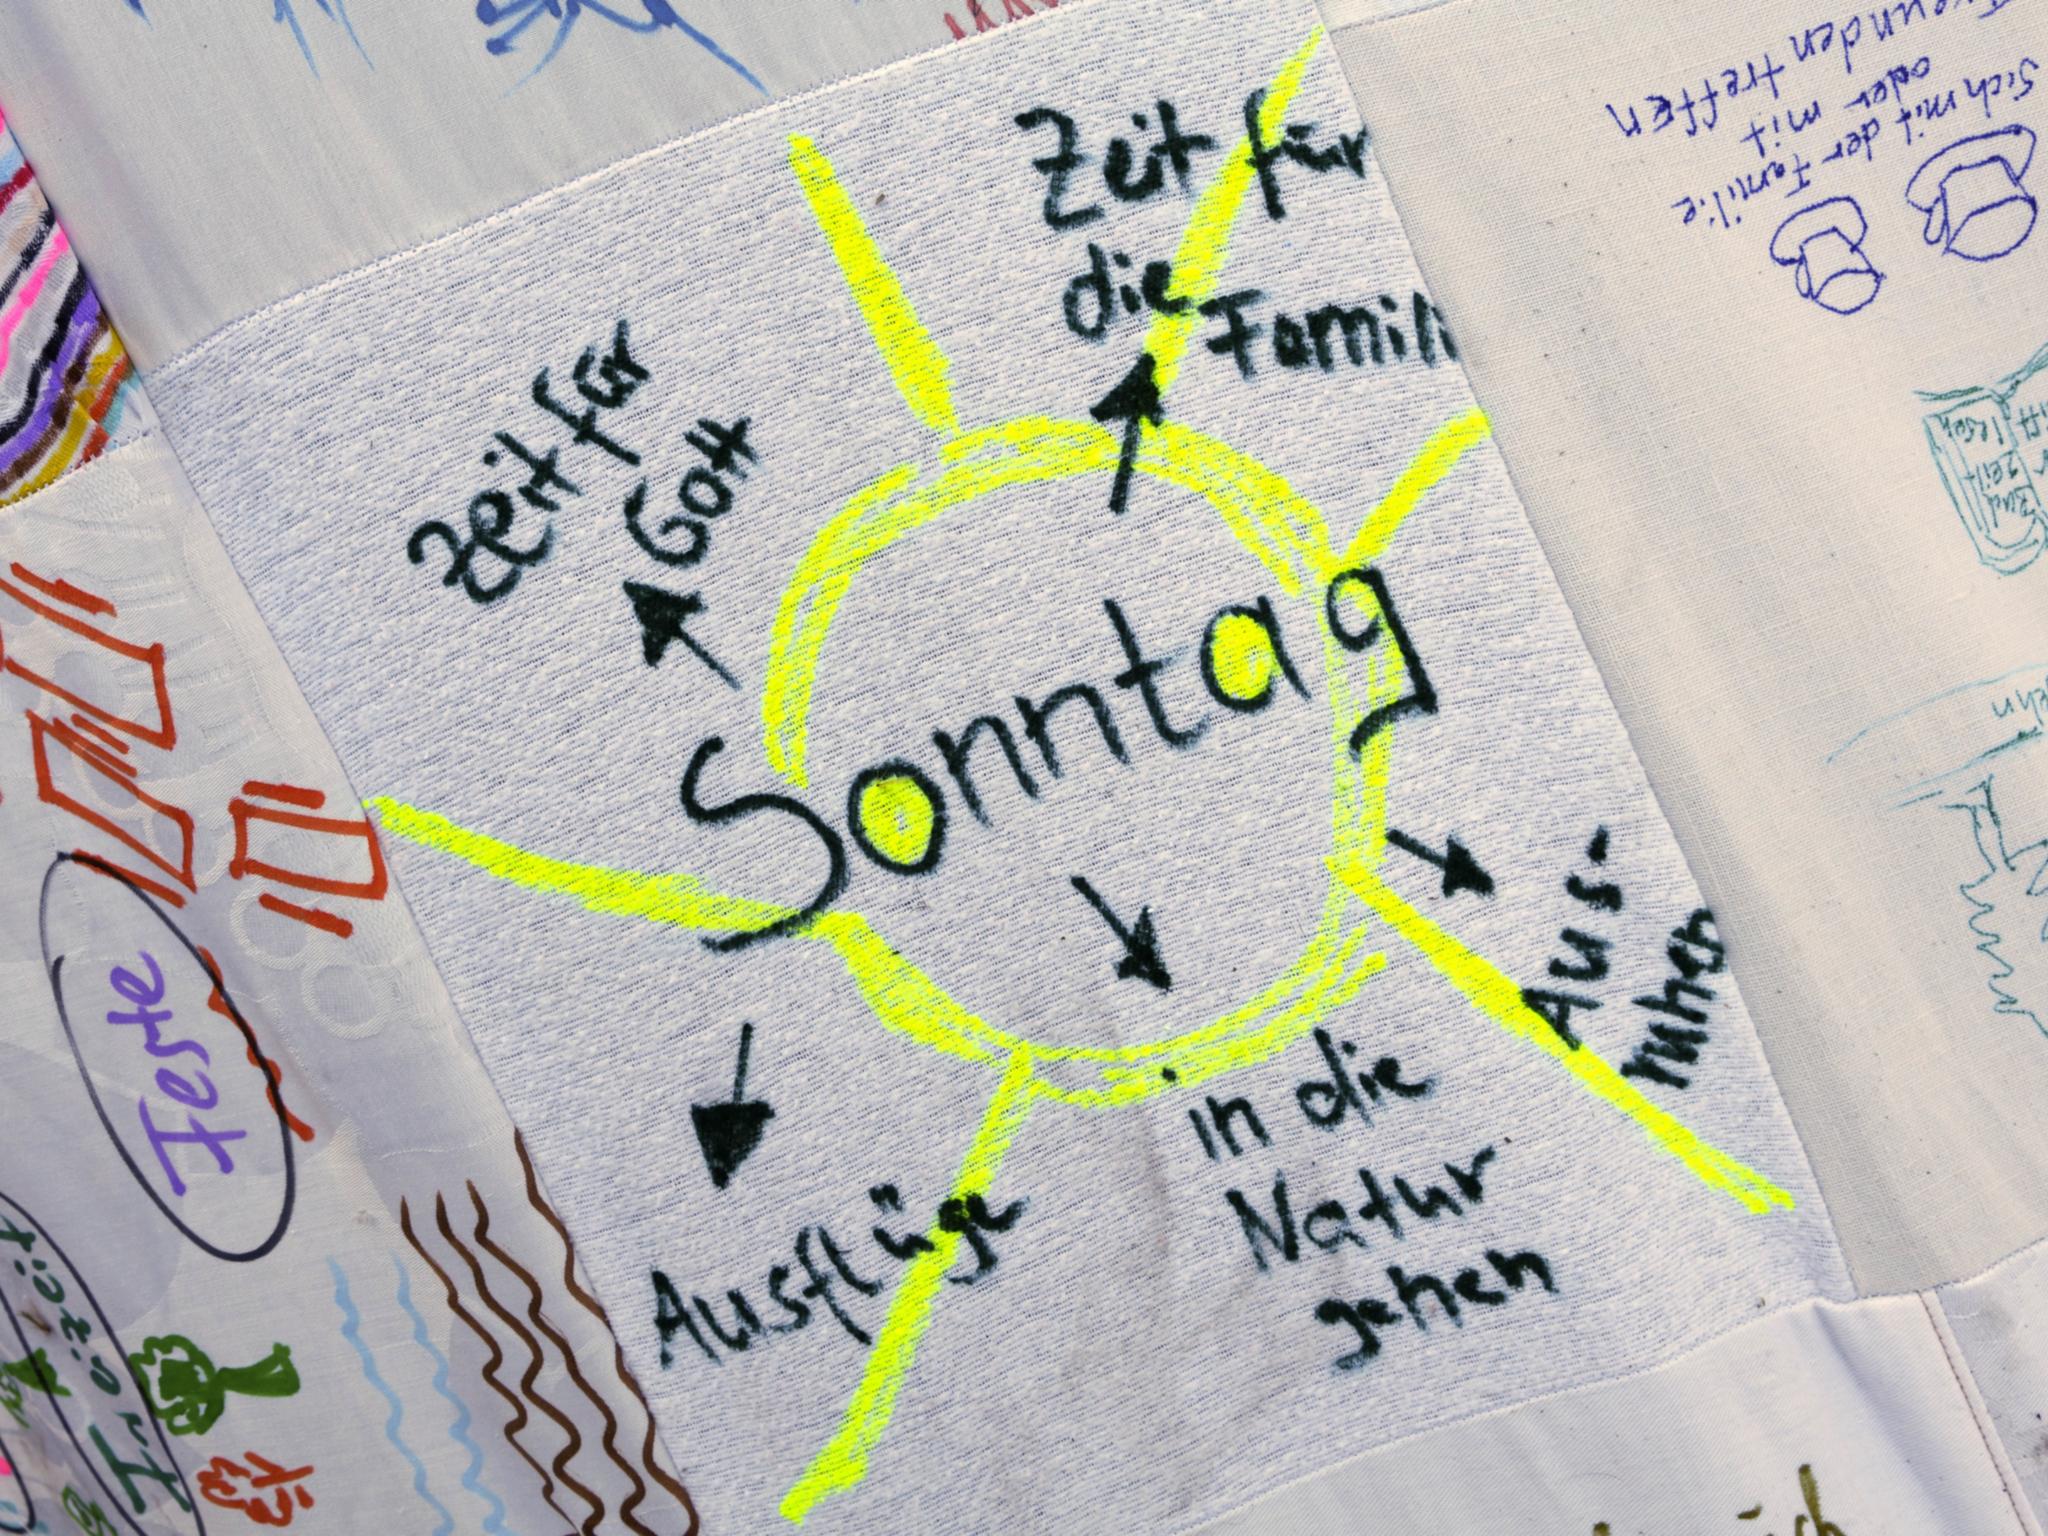 Zeit für
die Famili
Zeit für
Gott
Sonntag
Aus-
ruhen
in die
Natur
gehen
Ausflüge
Sich mit der Familie
oder mit
Freunden treffen
Feste